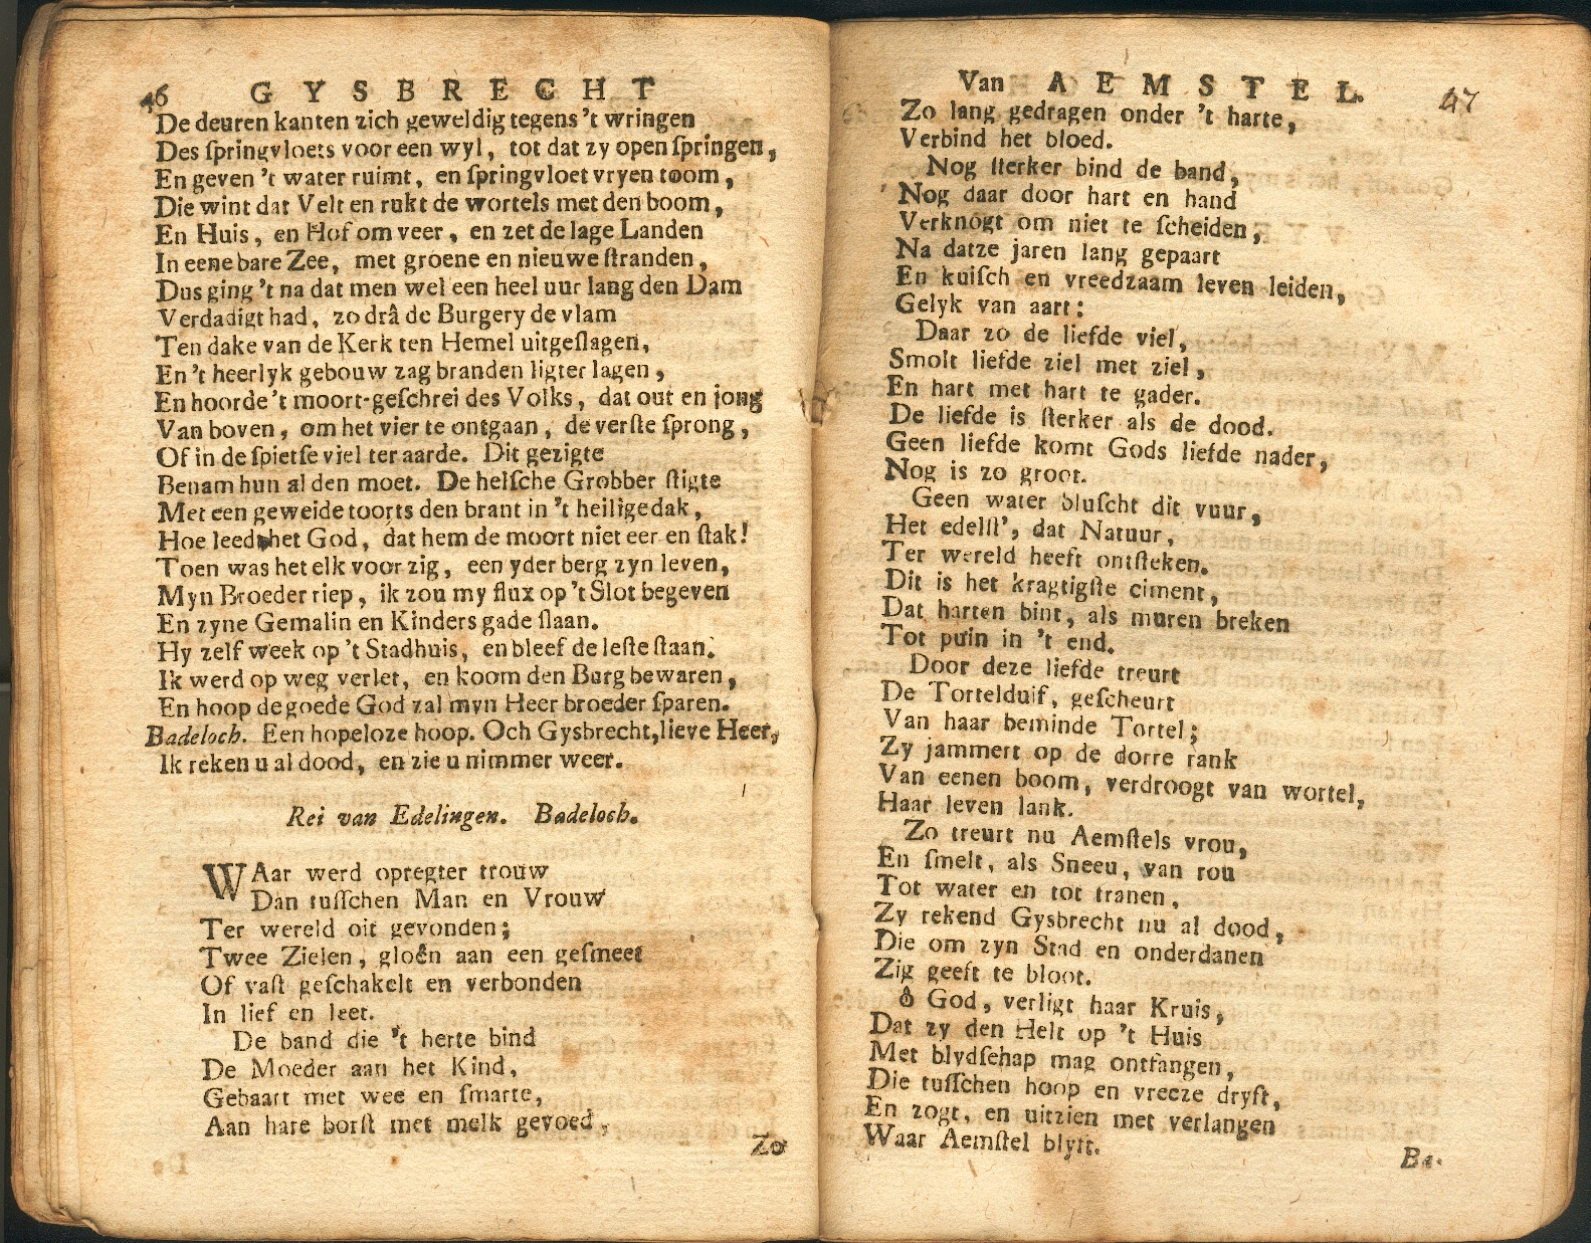 46 GYSBRECHT
De deuren kanten zich geweldig tegens 't wringen
Des ſpringvloets voor een wyl, tot dat zy open ſpringen,
En geven 't water ruimt, en ſpringvloet vryen toom,
Die wint dat Velt en rukt de wortels met den boom,
En Huis, en Hof om veer, en zet de lage Landen
In eene bare Zee, met groene en nieuwe ſtranden,
Dus ging 't na dat men wel een heel uur lang den Dam
Verdadigt had, zo drâ de Burgery de vlam
Ten dake van de Kerk ten Hemel uitgeſlagen,
En 't heerlyk gebouw zag branden ligter lagen,
En hoorde 't moort-geſchrei des Volks, dat out en jong
Van boven, om het vier te ontgaan, de verſte ſprong,
Of in de ſpietſe viel ter aarde. Dit gezigte
Benam hun al den moet. De helſche Grobber ſtigte
Met een geweide toorts den brant in 't heilige dak,
Hoe leed het God, dat hem de moort niet eer en ſtak!
Toen was het elk voor zig, een yder berg zyn leven,
Myn Broeder riep, ik zou my flux op 't Slot begeven
En zyne Gemalin en Kinders gade ſlaan.
Hy zelf week op 't Stadhuis, en bleef de leſte ſtaan.
Ik werd op weg verlet, en koom den Burg bewaren,
En hoop de goede God zal myn Heer broeder ſparen.
Badeloch. Een hopeloze hoop. Och Gysbrecht, lieve Heer,
Ik reken u al dood, en zie u nimmer weer.
Rei van Edelingen. Badeloch.
WAar werd opregter trouw
Dan tuſſchen Man en Vrouw
Ter wereld oit gevonden;
Twee Zielen, gloên aan een geſmeet
Of vaſt geſchakelt en verbonden
In lief en leet.
De band die 't herte bind
De Moeder aan het Kind,
Gebaart met wee en ſmarte,
Aan hare borſt met melk gevoed,
Zo
Van AEMSTEL. 47
Zo lang gedragen onder 't harte,
Verbind het bloed.
Nog ſterker bind de band,
Nog daar door hart en hand
Verknogt om niet te ſcheiden,
Na datze jaren lang gepaart
En kuiſch en vreedzaam leven leiden,
Gelyk van aart:
Daar zo de liefde viel,
Smolt liefde ziel met ziel,
En hart met hart te gader.
De liefde is ſterker als de dood.
Geen liefde komt Gods liefde nader,
Nog is zo groot.
Geen water bluſcht dit vuur,
Het edelſt', dat Natuur,
Ter wereld heeft ontſteken.
Dit is het kragtigſte ciment,
Dat harten bint, als muren breken
Tot puin in 't end.
Door deze liefde treurt
De Tortelduif, geſcheurt
Van haar beminde Tortel;
Zy jammert op de dorre rank
Van eenen boom, verdroogt van wortel,
Haar leven lank.
Zo treurt nu Aemſtels vrou,
En ſmelt, als Sneeu, van rou
Tot water en tot tranen,
Zy rekend Gysbrecht nu al dood,
Die om zyn Stad en onderdanen
Zig geeft te bloot.
ô God, verligt haar Kruis,
Dat zy den Helt op 't Huis
Met blydſehap mag ontfangen,
Die tuſſchen hoop en vreeze dryft,
En zogt, en uitzien met verlangen
Waar Aemſtel blyft.
Ba-